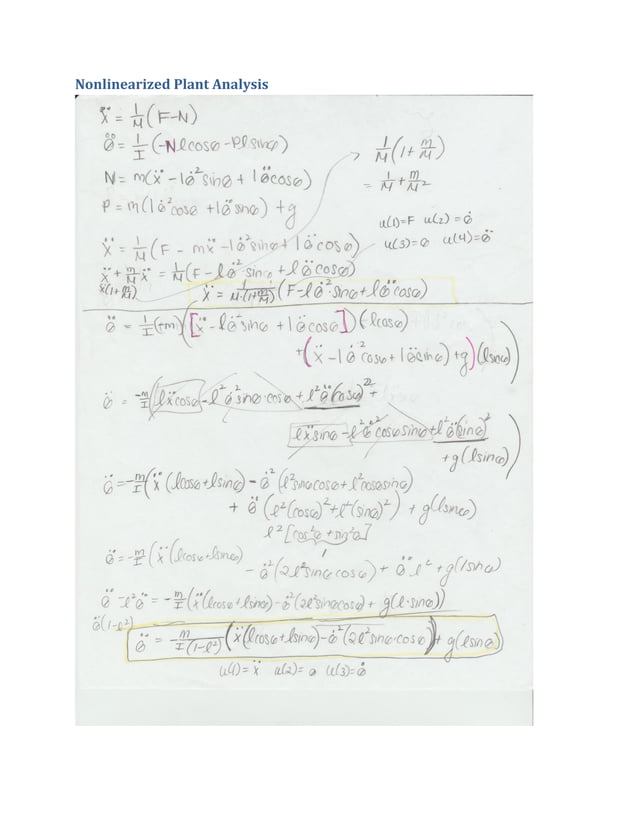 Nonlinearized Plant Analysis
ẍ = 1/M (F-N)
θ̈ = 1/I (-Nlcosθ - Plsinθ)
N = m(ẍ - lθ̇² sinθ + lθ̈cosθ)
P = m(lθ̇²cosθ + lθ̈sinθ) + g
1/M (1 + m/M)
= 1/M + m/M²
u(1)=F u(2)=θ̇
u(3)=θ u(4)=θ̈
ẍ = 1/M (F - mẍ - lθ̇²sinθ + lθ̈cosθ)
ẍ + m/M ẍ = 1/M (F - lθ̇²·sinθ + lθ̈cosθ)
ẍ(1+m/M)
ẍ = 1/M·(1+m/M) (F - lθ̇²·sinθ + lθ̈cosθ)
θ̈ = 1/I (-m)([ẍ - lθ̇²sinθ + lθ̈cosθ])(-lcosθ)
+(ẍ - lθ̇²cosθ + lθ̈sinθ) + g)(lsinθ))
θ̈ = -m/I (lẍcosθ - l²θ̇²sinθ·cosθ + l²θ̈(cosθ)² +
lẍsinθ - l²θ̇²cosθsinθ + l²θ̈(sinθ)²
+ g(lsinθ))
θ̈ = -m/I (ẍ(lcosθ + lsinθ) - θ̇²(l²sinθcosθ + l²cosθsinθ)
+ θ̈(l²(cosθ)² + l²(sinθ)²) + g(lsinθ)
l²[cos²θ + sin²θ]
1
θ̈ = -m/I (ẍ(lcosθ + lsinθ)
- θ̇²(2l²sinθcosθ) + θ̈l² + g(lsinθ)
θ̈ - l²θ̈ = -m/I (ẍ(lcosθ + lsinθ) - θ̇²(2l²sinθcosθ) + g(l·sinθ))
θ̈(1-l²)
θ̈ = -m/I(1-l²) (ẍ(lcosθ + lsinθ) - θ̇²(2l²sinθ·cosθ)) + g(lsinθ)
u(1)=ẍ u(2)=θ u(3)=θ̇